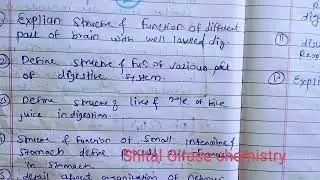 Explian Structre & function of different
part of brain with well labelled dig.
Define structre & fun of various part
of digestive system.
Define structre of live & role of bile
juice in digestion.
Structre and function of small intenstine &
stomach define
in stomach.
detail about organisation of nervous
Shital Girase chemistry
dig
(11)
Res
Expl